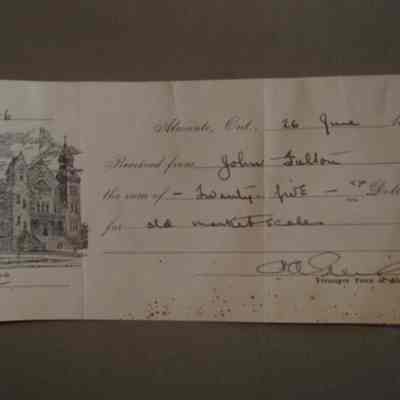 6
Almonte, Ont., 26 June
Received from John Fulton
the sum of - Twenty five - xx Doll
for old market scales
Treasurer Town of Al